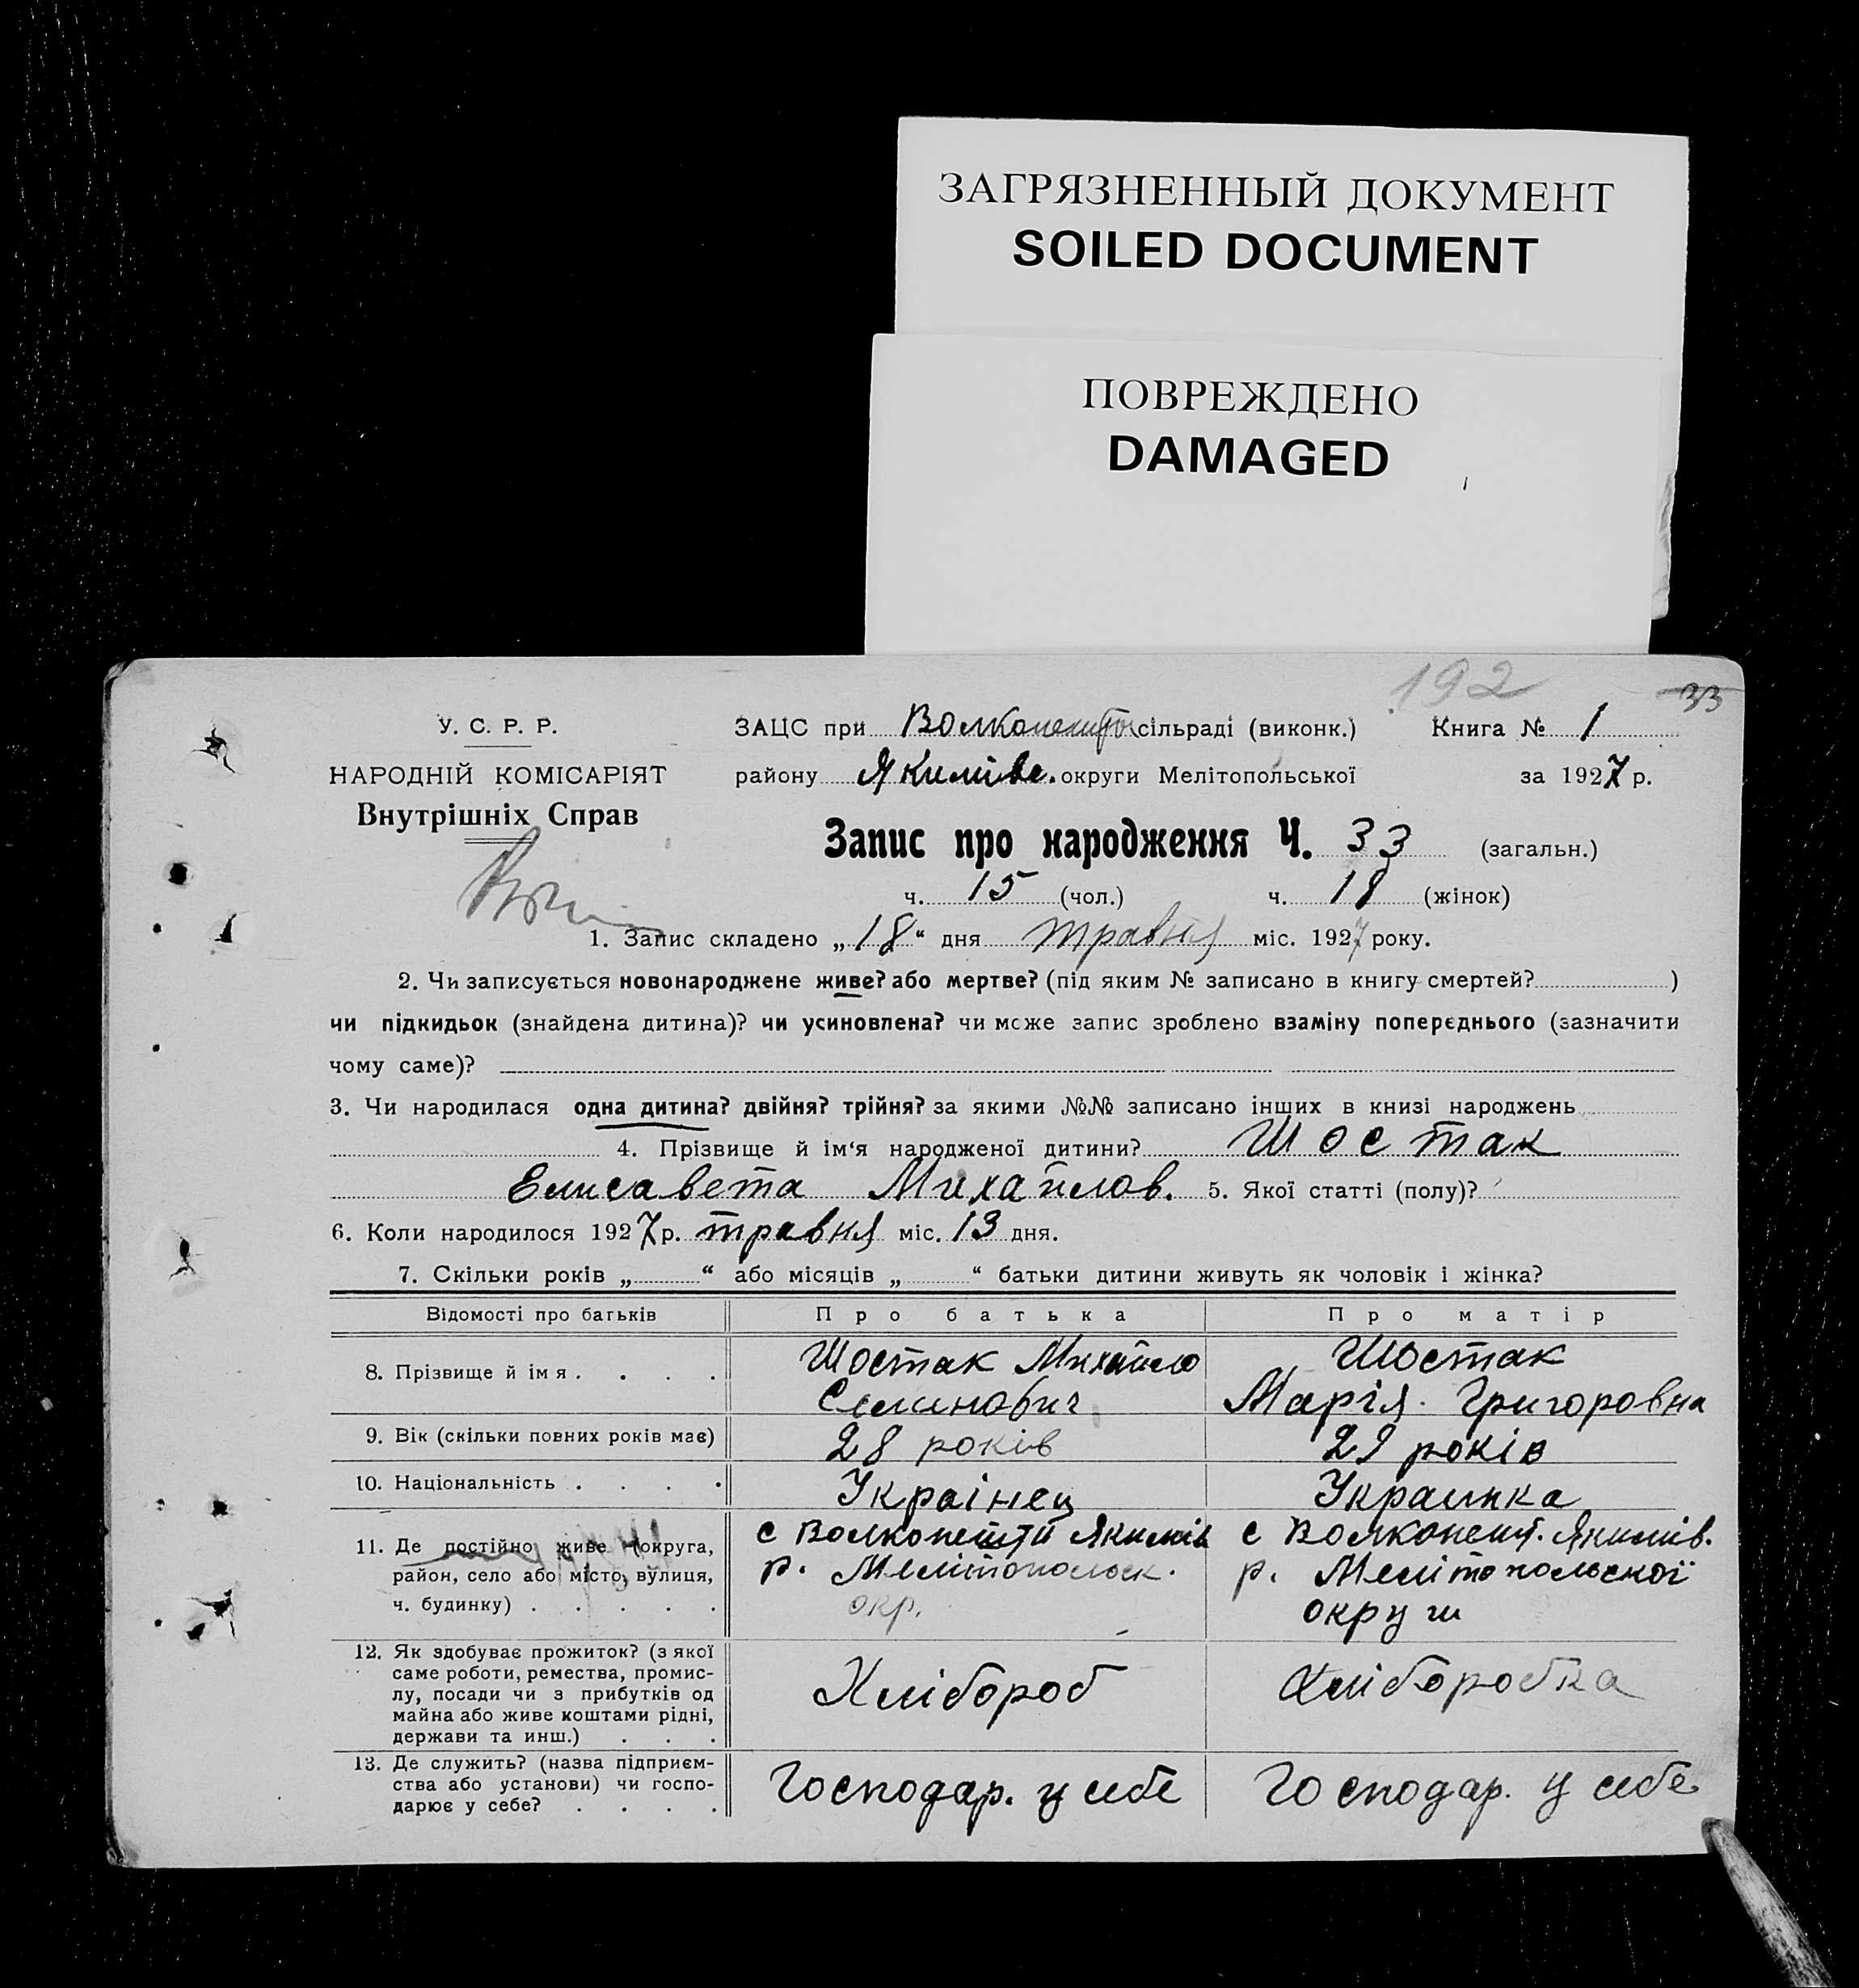 ЗАГРЯЗНЕННЫЙ ДОКУМЕНТ
SOILED DOCUMENT
ПОВРЕЖДЕНО
DAMAGED
192 33
У. С. Р. Р.
НАРОДНІЙ КОМІСАРІЯТ
Внутрішніх Справ
ЗАЦС при Волконешт сільраді (виконк.) Книга № 1
району Якимівс. округи Мелітопольської за 1927 р.
Запис про народження Ч. 33 (загальн.)
ч. 15 (чол.) ч. 18 (жінок)
1. Запис складено „18“ дня травня міс. 1927 року.
2. Чи записується новонароджене живе? або мертве? (під яким № записано в книгу смертей? )
чи підкидьок (знайдена дитина)? чи усиновлена? чи може запис зроблено взаміну попереднього (зазначити
чому саме)?
3. Чи народилася одна дитина? двійня? трійня? за якими №№ записано інших в книзі народжень
4. Прізвище й ім‘я народженої дитини? Шостак
Елисавета Михайлов. 5. Якої статті (полу)?
6. Коли народилося 1927 р. травня міс. 13 дня.
7. Скільки років „ “ або місяців „ “ батьки дитини живуть як чоловік і жінка?
Відомості про батьків Про батька Про матір
8. Прізвище й імя . . . . Шостак Михайло Шостак
Семенович Марія Григоровна
9. Вік (скільки повних років має) 28 років 29 років
10. Національність . . . . Украінец Украинка
11. Де постійно живе (округа, с Волконешти Якимів с Волконешт. Якимів.
район, село або місто, вулиця, р. Мелітопольск. р. Мелітопольскої
ч. будинку) . . . . . окр. округи
12. Як здобуває прожиток? (з якої
саме роботи, ремества, промис-
лу, посади чи з прибутків од Хлібороб Хліборобка
майна або живе коштами рідні,
держави та инш.) . . .
13. Де служить? (назва підприєм-
ства або установи) чи госпо- Господар. у себе Господар. у себе
дарює у себе? . . . .